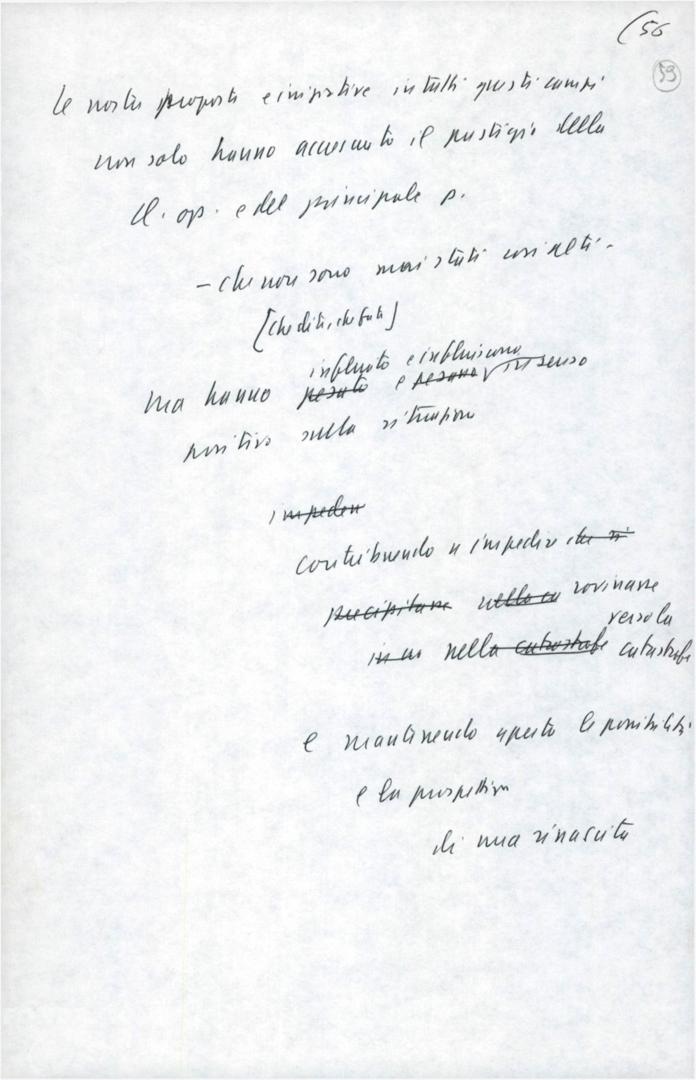 (56
59
le nostre proposte e iniziative in tutti questi campi
non solo hanno accresciuto il prestigio della
cl. op. e del principale p.
- che non sono mai stati così alti -
[che diti, che fati]
influito e influiscono
ma hanno pesato e pesano √ in senso
positivo sulla situazione
impeden
contribuendo a impedire che si
precipitare nella ca rovinare
verso la
in un nella catastrofe catastrofe
e mantenendo aperte le possibilità
e la prospettiva
di una rinascita